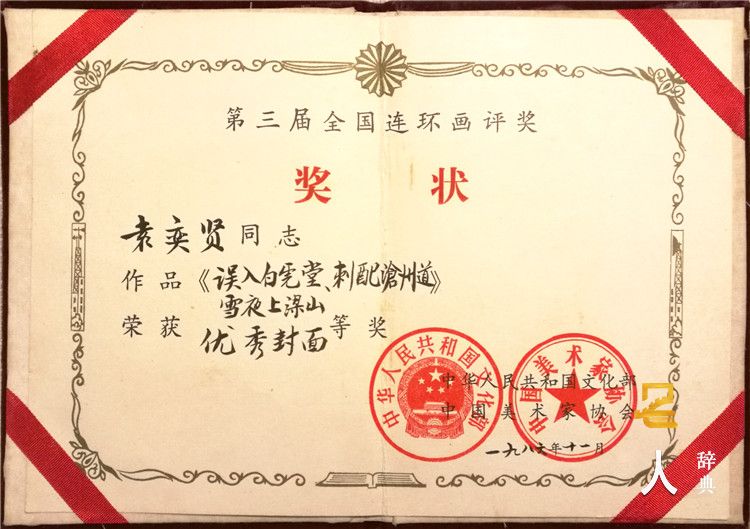 第三届全国连环画评奖
奖状
袁奕贤同志
作品《误入白虎堂、刺配滄州道》
雪夜上梁山
荣获优秀封面等奖
中华人民共和国文化部
中国美术家协会
一九八六年十一月
中华人民共和国文化部
中国美术家协会
人
辞典